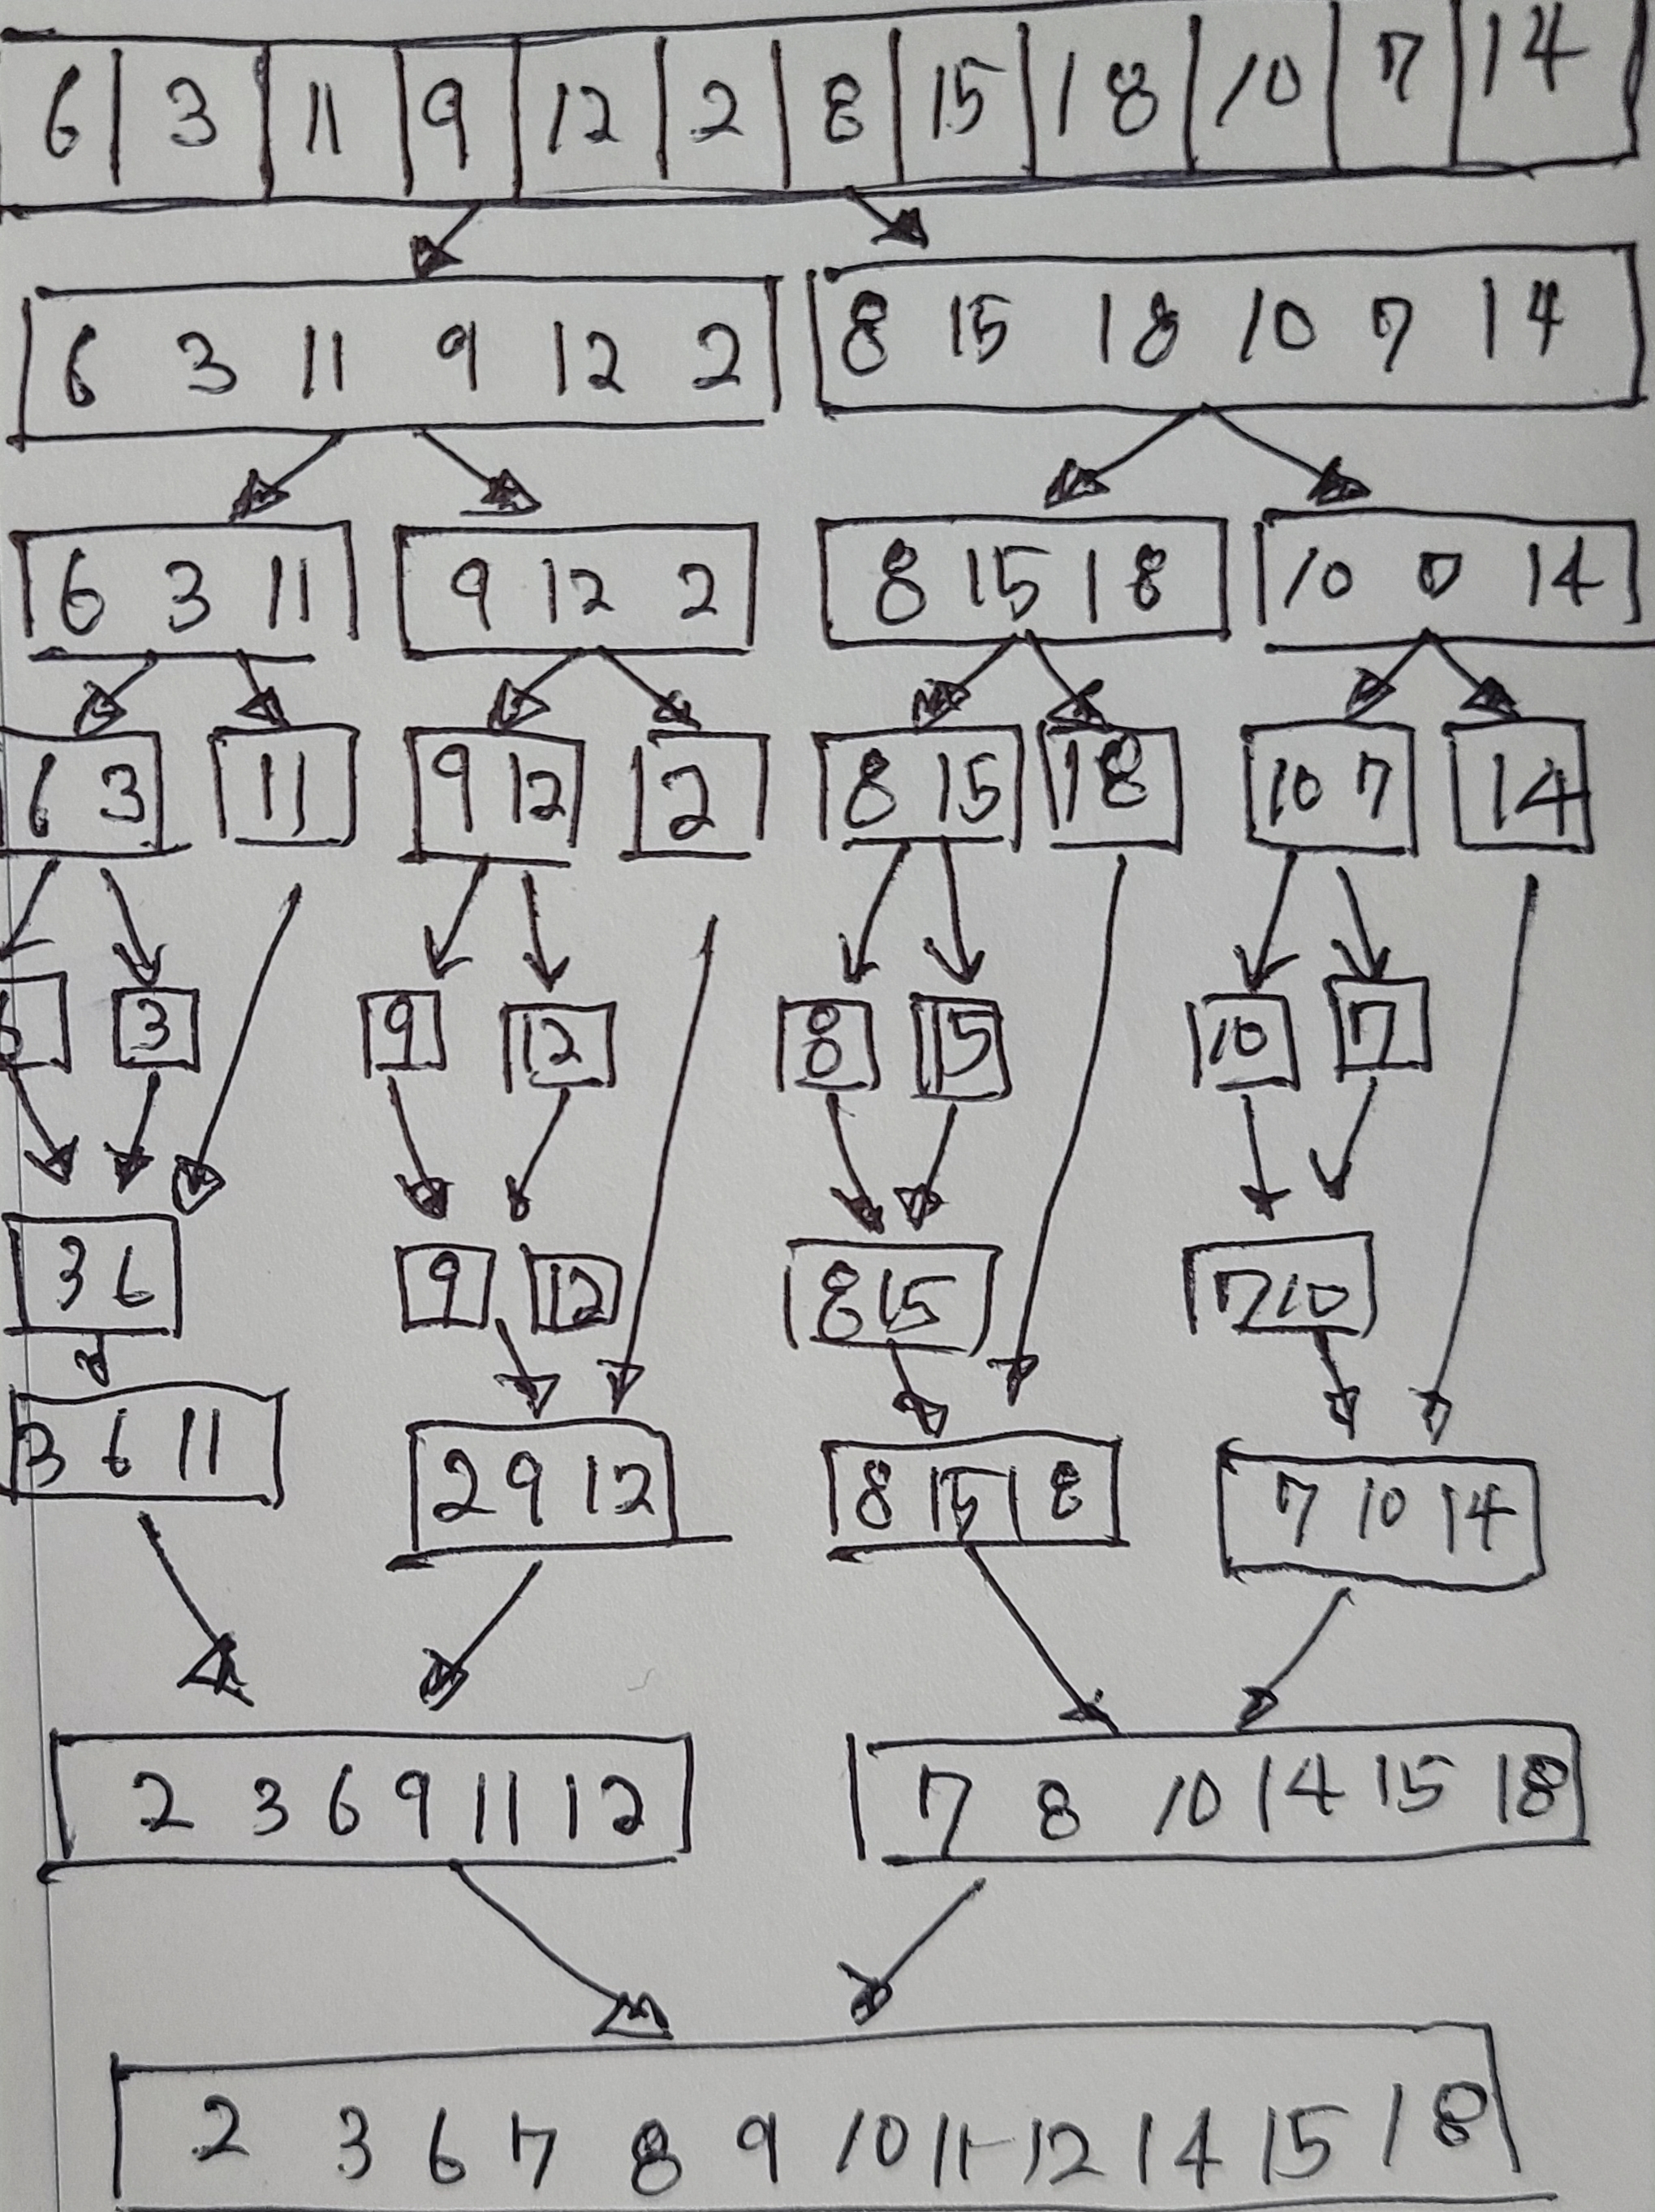 6 3 11 9 12 2 8 15 18 10 7 14
6 3 11 9 12 2 8 15 18 10 7 14
6 3 11 9 12 2 8 15 18 10 0 14
6 3 11 9 12 2 8 15 18 10 7 14
3 9 12 8 15 10 7
3 6 9 12 8 15 7 10
3 6 11 2 9 12 8 15 18 7 10 14
2 3 6 9 11 12 7 8 10 14 15 18
2 3 6 7 8 9 10 11 12 14 15 18